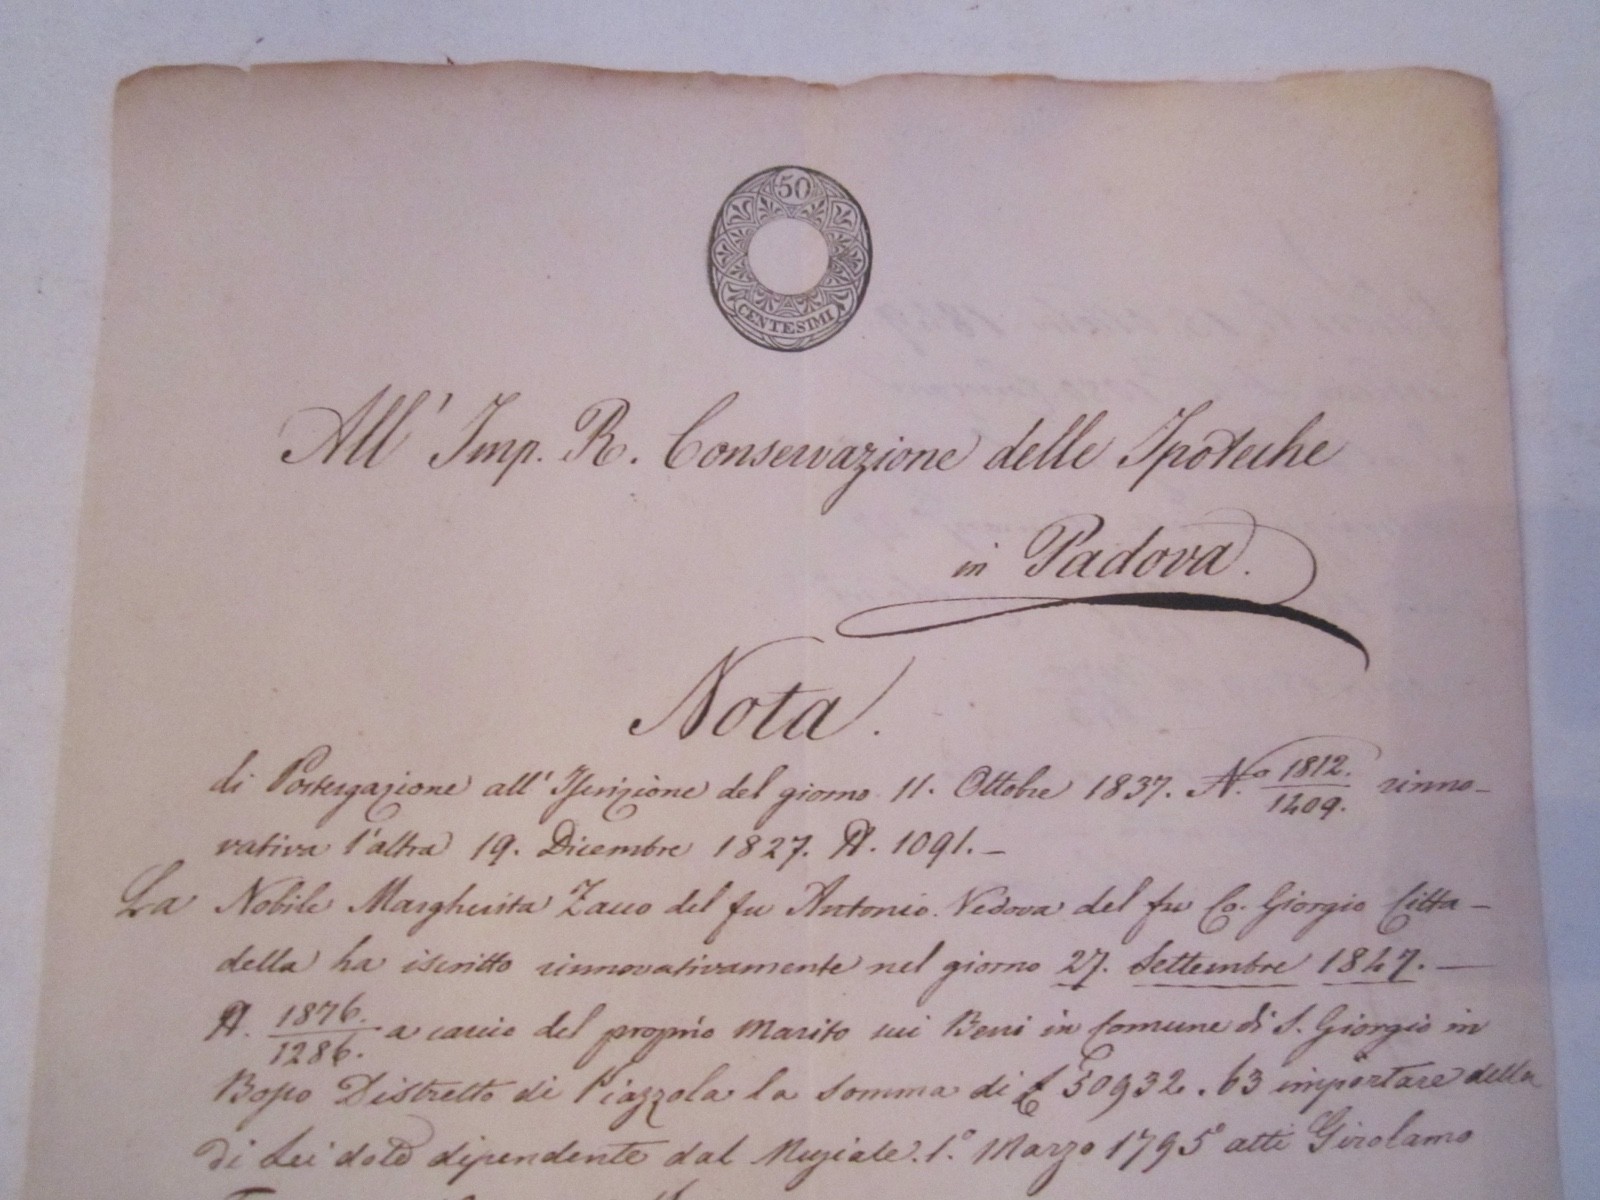 50
CENTESIMI
All' Imp. R. Conservazione delle Ipoteche
in Padova.
Nota.
di Postergazione all'Iscrizione del giorno 11. Ottobre 1837. N.o 1812./1409. rinno-
vativa l'altra 19. Dicembre 1827. N. 1091.-
La Nobile Margherita Zacco del fu Antonio. Vedova del fu Co. Giorgio Citta-
della ha iscritto rinnovativamente nel giorno 27. Settembre 1847.-
N. 1876./1286. a carico del proprio Marito sui Beni in Comune di S. Giorgio in
Bosco Distretto di Piazzola la somma di £ 50932.63 importare della
di Lei dote dipendente dal Nuziale. 1.o Marzo 1795 atti Girolamo